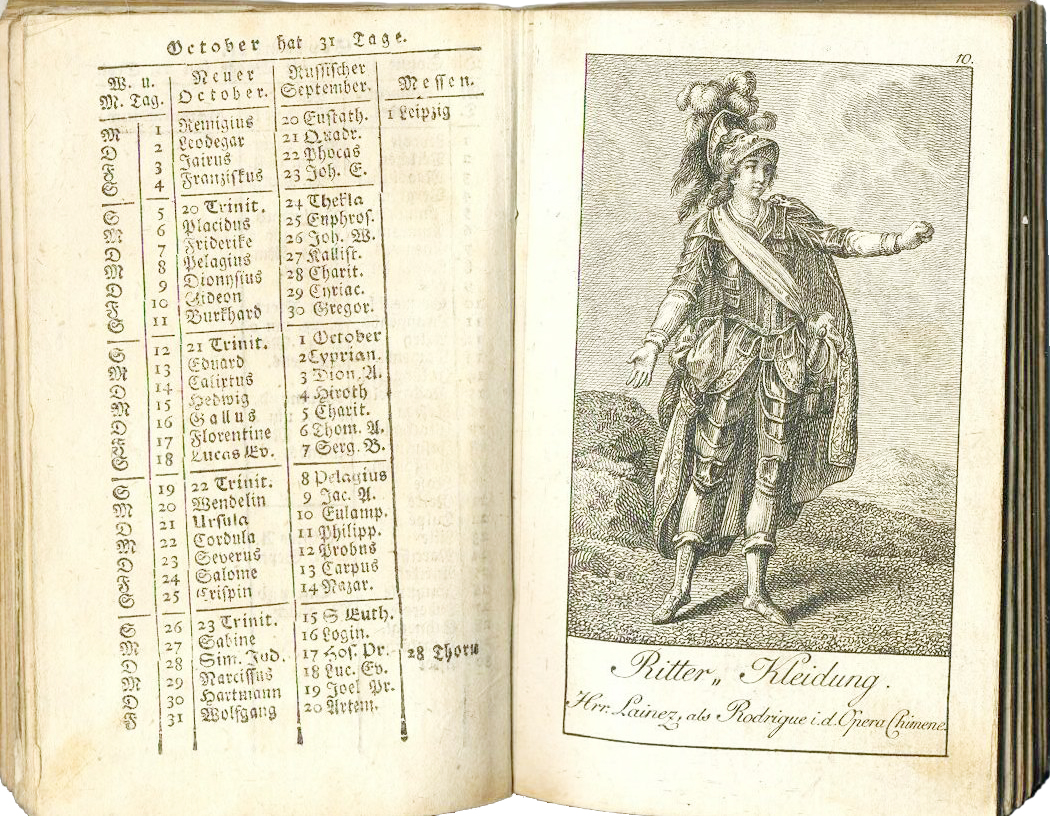 October hat 31 Tage.
W. u. M. Tag. Neuer October. Russischer September. Messen.
M 1 Remigius 20 Eustath. 1 Leipzig
D 2 Leodegar 21 Quadr.
F 3 Jairus 22 Phocas
S 4 Franziskus 23 Joh. E.
S 5 20 Trinit. 24 Thekla
M 6 Placidus 25 Euphros.
D 7 Friderike 26 Joh. W.
M 8 Pelagius 27 Kallist.
D 9 Dionysius 28 Charit.
F 10 Gideon 29 Cyriac.
S 11 Burkhard 30 Gregor.
S 12 21 Trinit. 1 October
M 13 Eduard 2 Cyprian.
D 14 Calixtus 3 Dion. A.
M 15 Hedwig 4 Hiroth
D 16 Gallus 5 Charit.
F 17 Florentine 6 Thom. A.
S 18 Lucas Ev. 7 Serg. B.
S 19 22 Trinit. 8 Pelagius
M 20 Wendelin 9 Jac. A.
D 21 Ursula 10 Eulamp.
M 22 Cordula 11 Philipp.
D 23 Severus 12 Probus
F 24 Salome 13 Carpus
S 25 Crispin 14 Nazar.
S 26 23 Trinit. 15 S Euth.
M 27 Sabine 16 Login.
D 28 Sim. Jud. 17 Hos. Pr. 28 Thorn
M 29 Narcissus 18 Luc. Ev.
D 30 Hartmann 19 Joel Pr.
F 31 Wolfgang 20 Artem.
10.
Ritter„ Kleidung.
Hrr. Lainez, als Rodrigue i. d. Opera Chimene.